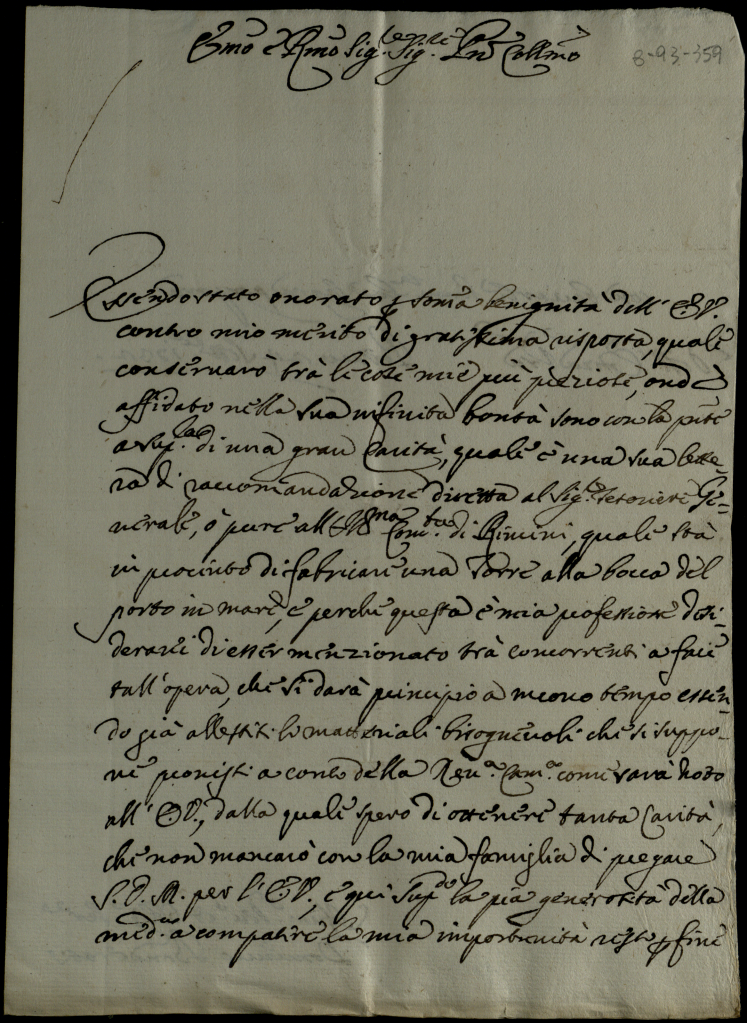 Emo e Rmo Sig.re Sig.re Pne Collmo
8-93-359
Essendo stato onorato p soma benignità dell' E.V.
contro mio merito di gratissima risposta, quale
conservarò trà le cose mie più preziose, onde
affidato nella sua infinita bontà sono con la pnte
a sup.la di una gran Carità, quale è una sua lette-
ra di raccomandazione diretta al Sig.re Tesoriere Ge-
nerale, ò pure all' Ill.ma Com.tà di Rimini, quale stà
in procinto di fabricare una Torre alla bocca del
porto in mare, e perche questa è mia professione desi-
derarei di esser menzionato trà concorrenti a fare
tall' opera, che si darà principio a meno tempo essen-
do già allestiti li materiali bisognevoli che si suppo-
ne provisti a conto della Reu.a Cam.a come sarà noto
all' E.V., dalla quale spero di ottenere tanta Carità,
che non mancarò con la mia famiglia di pregare
S. D. M. per l' E.V., e qui sup.do la pia generosità della
med.ma a compatire la mia importunità resto p fine